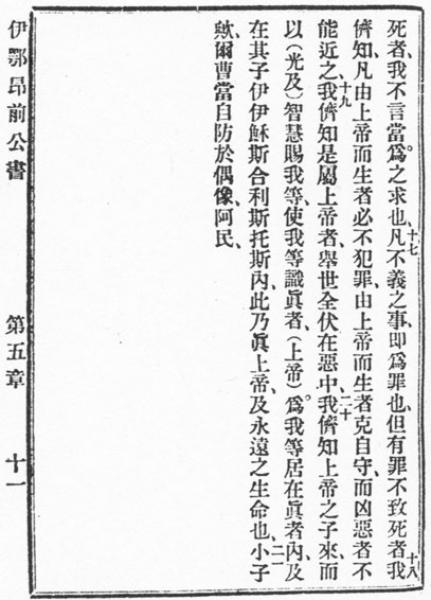 死者、我不言當。爲之求也、十七凡不義之事、即爲罪也、但有罪不致死者、十八我
儕知、凡由上帝而生者必不犯罪、由上帝而生者克自守、而凶惡者不
能近之、十九我儕知是屬上帝者、舉世全伏在惡中、二十我儕知上帝之子來、而
以（光及）智慧賜我等、使我等識眞者、（上帝）。爲我等居在眞者內、及
在其子伊伊穌斯合利斯托斯內、此乃眞上帝、及永遠之生命也、二一小子
歟、爾曹當自防於偶像、阿民、
伊鄂昂前公書 第五章 十一